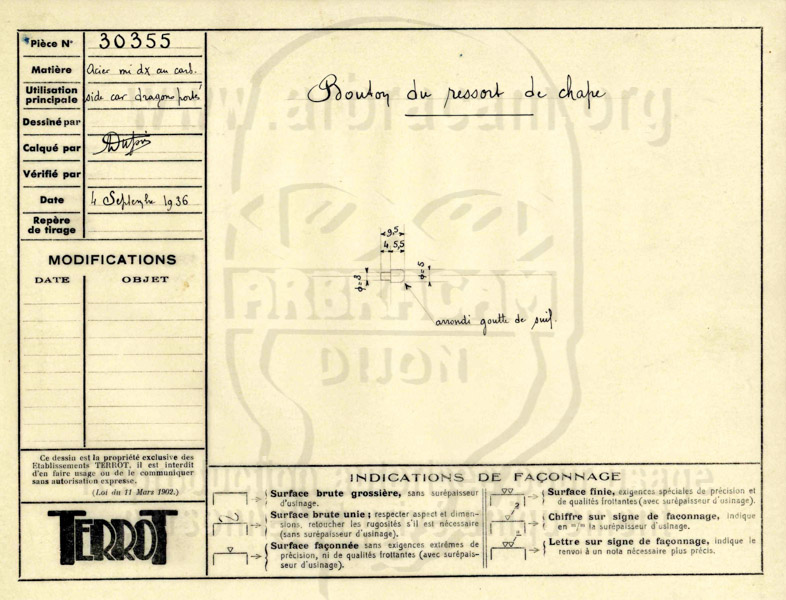 Pièce N° 30355
Matière Acier mi dx au carb.
Utilisation
principale side car dragon porté
Dessiné par
Calqué par
Vérifié par
Date 4 Septembre 1936
Repère
de tirage
MODIFICATIONS
DATE OBJET
Ce dessin est la propriété exclusive des
Etablissements TERROT, il est interdit
d'en faire usage ou de le communiquer
sans autorisation expresse.
(Loi du 11 Mars 1902.)
TERROT
Bouton du ressort de chape
9,5
4 5,5
φ=3
φ=5
arrondi goutte de suif.
www.arbracam.org
ARBRACAM
DIJON
INDICATIONS DE FAÇONNAGE
Surface brute grossière, sans surépaisseur
d'usinage.
Surface brute unie; respecter aspect et dimen-
sions, retoucher les rugosités s'il est nécessaire
(sans surépaisseur d'usinage).
Surface façonnée sans exigences extrêmes de
précision, ni de qualités frottantes (avec surépais-
seur d'usinage).
Surface finie, exigences spéciales de précision et
de qualités frottantes (avec surépaisseur d'usinage).
Chiffre sur signe de façonnage, indique
en m/m la surépaisseur d'usinage.
Lettre sur signe de façonnage, indique le
renvoi à un nota nécessaire plus précis.